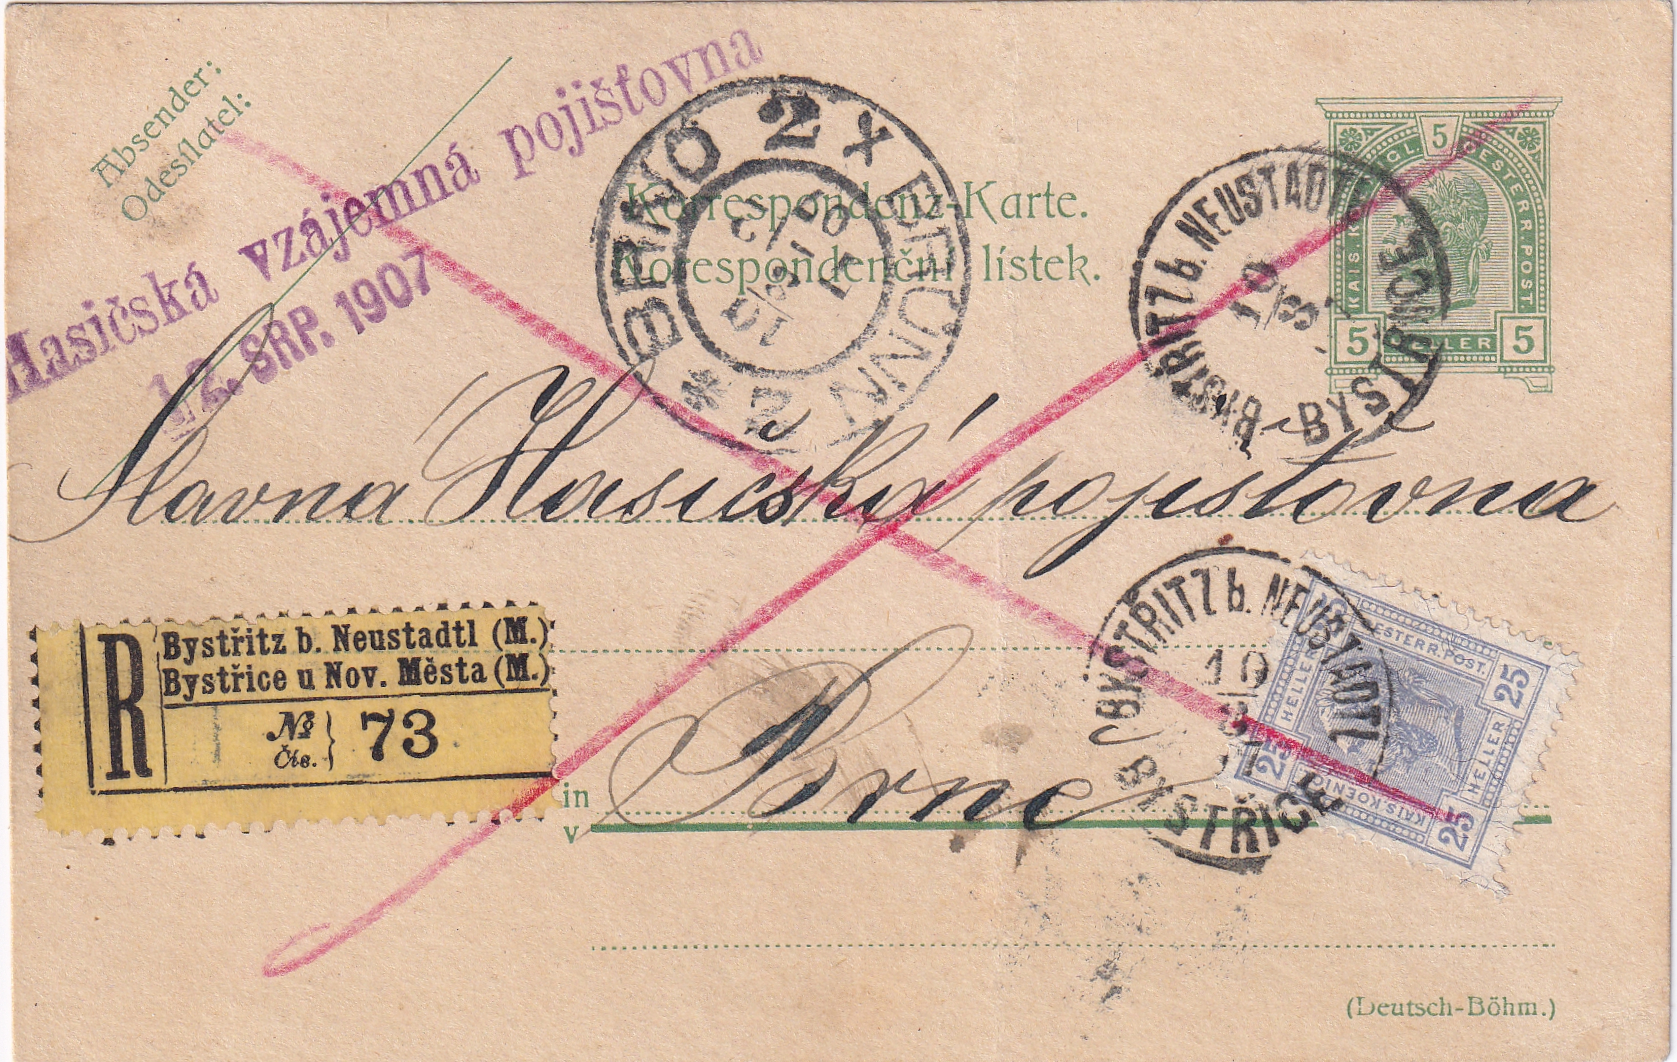 Absender:
Odesílatel:
Hasičská vzájemná pojišťovna
12. SRP. 1907
BRNO 2 × BRÜNN 2 *
Korrespondenz-Karte.
Korespondenční lístek.
BYSTŘITZ b. NEUSTADTL
BYSTŘICE
10
8
KAIS. KÖNIGL. OESTERR. POST.
5
5 HELLER 5
Slavna Hasičská pojistovna
R
Bystřitz b. Neustadtl (M.)
Bystřice u Nov. Města (M.)
№
Čís. } 73
in
v Brně
BYSTŘITZ b. NEUSTADTL
BYSTŘICE
10
8
OESTERR. POST.
KAIS. KOENIGL.
HELLER
HELLER
25
25
25
(Deutsch-Böhm.)